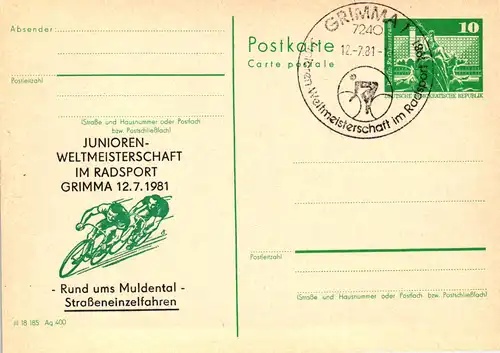 Absender:
Postleitzahl
(Straße und Hausnummer oder Postfach
bzw. Postschließfach)
JUNIOREN-
WELTMEISTERSCHAFT
IM RADSPORT
GRIMMA 12.7.1981
- Rund ums Muldental -
Straßeneinzelfahren
III 18 185 Ag 400
Postkarte
Carte postale
GRIMMA 1
7240
12.-7.81-
Junioren-Weltmeisterschaft im Radsport 1981
10
DEUTSCHE DEMOKRATISCHE REPUBLIK
Postleitzahl
(Straße und Hausnummer oder Postfach bzw. Postschließfach)